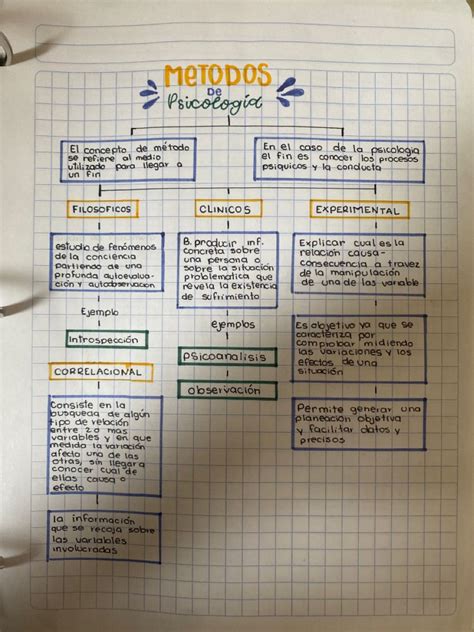 METODOS
DE
Psicología
El concepto de método
se refiere al medio
utilizado para llegar a
un fin
En el caso de la psicologia
el fin es conocer los procesos
psiquicos y la conducta
FILOSOFICOS
CLINICOS
EXPERIMENTAL
estudio de fenómenos
de la conciencia
partiendo de una
profunda autoevalu-
ación y autobservacion
Ejemplo
Introspección
B. producir inf.
concreta sobre
una persona o
sobre la situación
problematica que
revela la existencia
de sufrimiento
ejemplos
psicoanalisis
observación
Explicar cual es la
relación causa-
consecuencia a travez
de la manipulación
de una de las variable
Es objetivo ya que se
caracteriza por
comprobar midiendo
las variaciones y los
efectos de una
situación
Permite generar una
planeacion objetiva
y facilitar datos y
precisos
CORRELACIONAL
Consiste en la
busqueda de algún
tipo de relación
entre 2 o mas
variables y en que
medida la variación
afecto una de las
otras, sin llegar a
conocer cual de
ellas causa o
efecto
la información
que se recoja sobre
las variables
involucradas